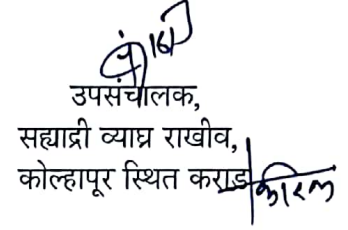 उपसंचालक,
सह्याद्री व्याघ्र राखीव,
कोल्हापूर स्थित कराड